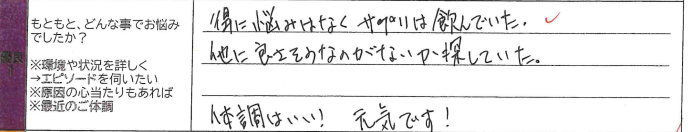 もともと、どんな事でお悩み
でしたか？
※環境や状況を詳しく
→エピソードを伺いたい
※原因の心当たりもあれば
※最近のご体調
特に悩みはなく サプリは飲んでいた。
他に良さそうなのがないか探していた。
体調はいい! 元気です!